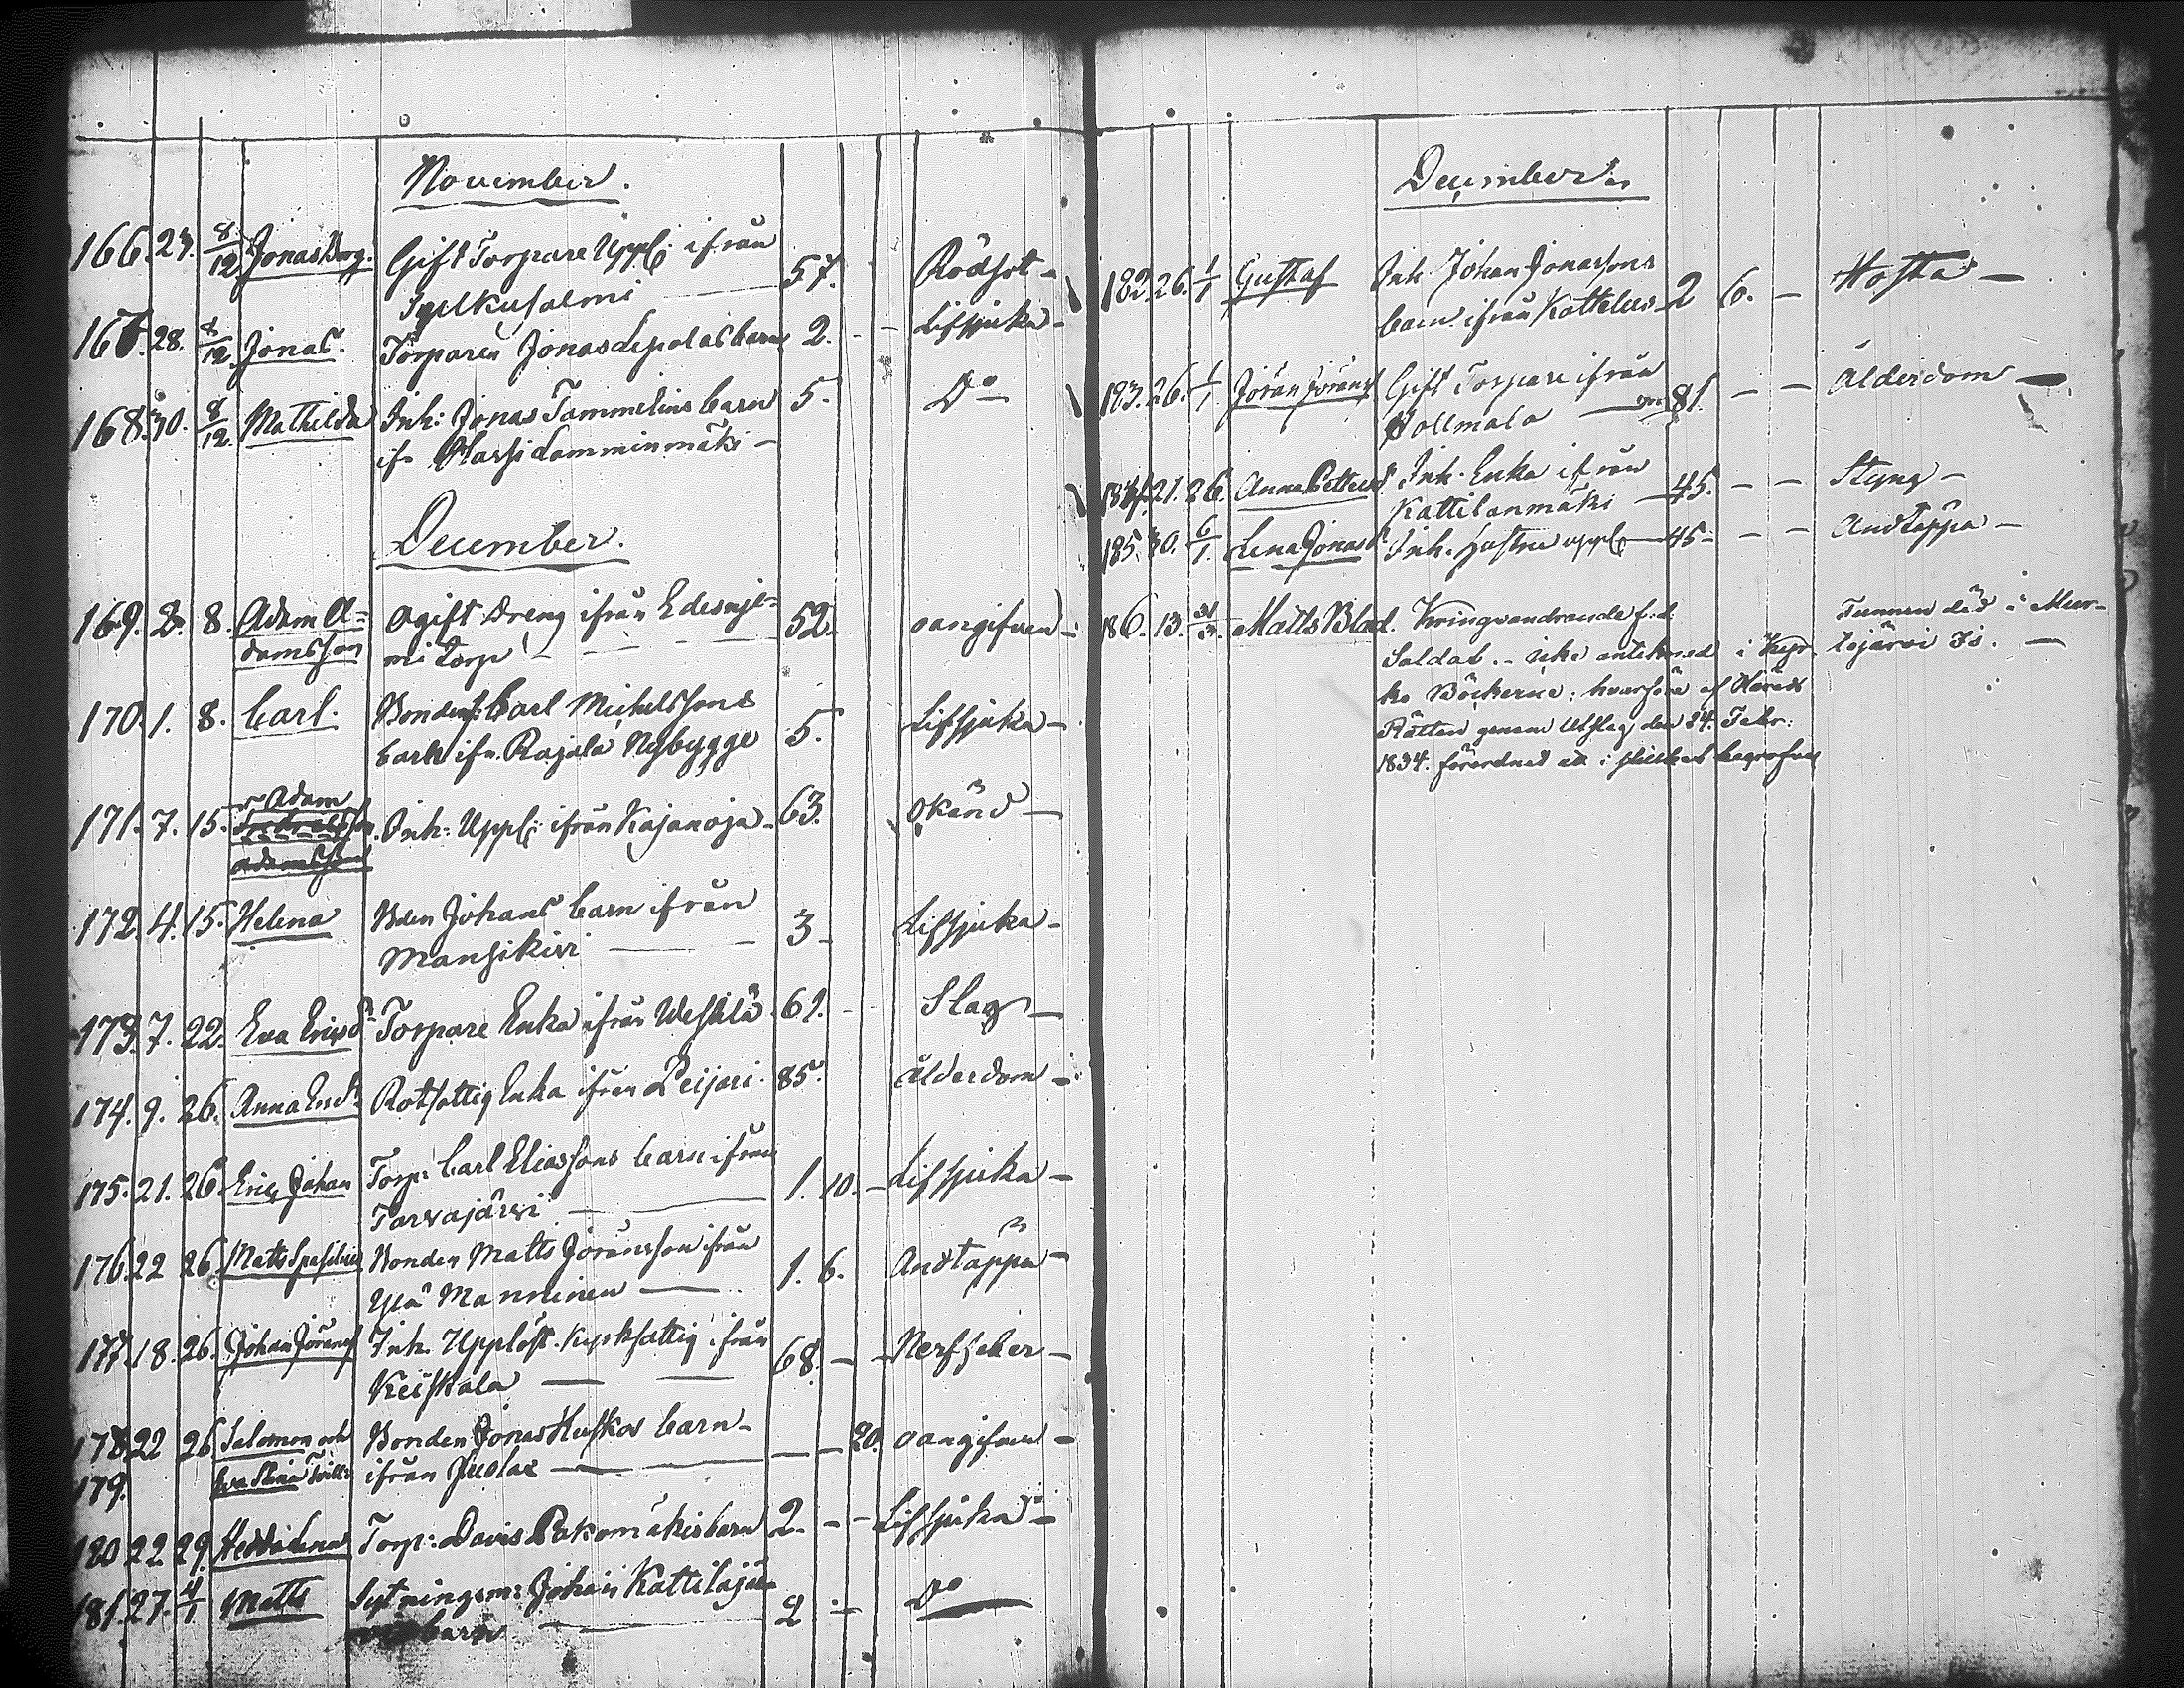 November.
166. 23. 8/12 Jonas Borg. Gift Torpare Uppl: ifrån 57. Rödsot -
167. 28. 8/12 Jonas. Torparen Jonas Lepolas barn 2. - - Lifsjuka -
168. 30. 8/12 Mathilda Inh: Jonas Tammelins barn 5. Do -
December.
169. 2. 8. Adam A= Ogift Dreng ifrån 52. oangifven -
damsson mi Torp - - -
170. 1. 8. Carl. Bonden Carl Michelssons
barn ifn. Rajala Nybygge 5. Lifsjuka -
171. 7. 15. Adam Inh: Uppl: ifrån Kajanoja - 63. Okänd -
172. 4. 15. Helena Bden Johans barn ifrån
Mansikivi 3 - Lifsjuka -
173. 7. 22. Eva Ericsdr Torpare Enka ifrån 61. - Slag -
174. 9. 26. Anna Ersdr Rotfattig Enka ifrån Peijari. 85. ålderdom -
175. 21. 26. Eric Johan Torp: Carl Eliassons barn ifrån
Tarvajärvi - 1. 10. - Lifsjuka -
176. 22 26 Matts Bonden Matts Joransson ifrån
Ylä Manninen - 1. 6. Andtäppa -
177. 18. 26. Johan Joranss Inh. Uppl. Kyrkfattig ifrån
Keiskala - - 68. - - Nerffeber -
178. 22 26 Salomon och Bonden Jonas Huskos barn -
179. Eva Stina Tvill: ifrån - - - 20. oangifven -
180 22 29. Hedda Lena Torp: Davis Pakomäkis barn 2. - - Lifsjuka -
181. 27. 4/1 Matts Sytningsm: Johan Kattilajär=
barn - 2 - Do
December.
182. 26. 1/1 Gustaf Inh Johan Jonassons
barn ifrån Kattelus - 2 6. - Hosta -
183. 26. 1/1 Joran Joranss Gift Torpare ifrån
Sollmala - 81. - - Ålderdom -
184. 21. 26. Anna Pettersdr. Inh. Enka ifrån
Kattilanmäki - 45. - - Styng -
185. 30. 6/1. Lena Jonasdr Inh. hustru uppl: - 45 - - - Andtäppa -
186. 13. Matts Blad. Kringvandrande f: d: Funnen död i Mur-
Soldat. - icke antecknad i Kyr- tojärvi By. -
ko Böckerne; hvarföre af Härads
Rätten genom Utslag den 24. Febr:
1834. förordnad att i stillhet begrafvas